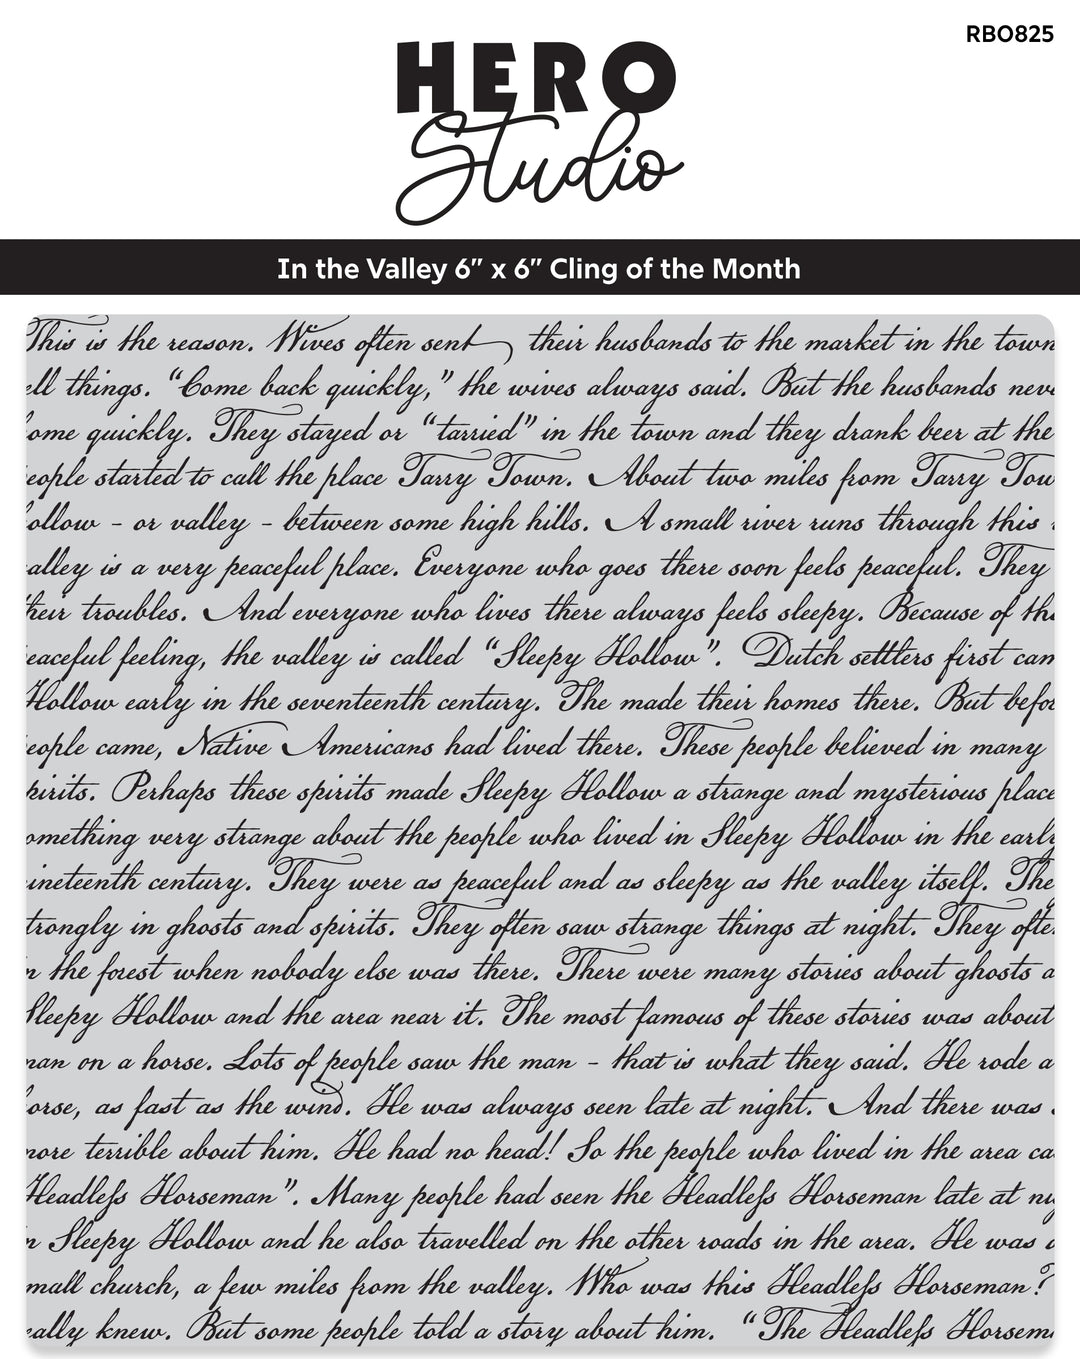 RBO825
HERO
Studio
In the Valley 6" x 6" Cling of the Month
This is the reason. Wives often sent their husbands to the market in the town
ll things. “Come back quickly,” the wives always said. But the husbands neve
ome quickly. They stayed or “tarried” in the town and they drank beer at the
eople started to call the place Tarry Town. About two miles from Tarry Tow
ollow - or valley - between some high hills. A small river runs through this
alley is a very peaceful place. Everyone who goes there soon feels peaceful. They
heir troubles. And everyone who lives there always feels sleepy. Because of the
eaceful feeling, the valley is called “Sleepy Hollow”. Dutch settlers first cam
Hollow early in the seventeenth century. The made their homes there. But befo
eople came, Native Americans had lived there. These people believed in many
pirits. Perhaps these spirits made Sleepy Hollow a strange and mysterious place
omething very strange about the people who lived in Sleepy Hollow in the early
ineteenth century. They were as peaceful and as sleepy as the valley itself. The
trongly in ghosts and spirits. They often saw strange things at night. They ofte
n the forest when nobody else was there. There were many stories about ghosts a
Sleepy Hollow and the area near it. The most famous of these stories was about
man on a horse. Lots of people saw the man - that is what they said. He rode a
orse, as fast as the wind. He was always seen late at night. And there was
more terrible about him. He had no head! So the people who lived in the area ca
Headless Horseman”. Many people had seen the Headless Horseman late at ni
n Sleepy Hollow and he also travelled on the other roads in the area. He was
mall church, a few miles from the valley. Who was this Headless Horseman?
eally knew. But some people told a story about him. “The Headless Horsem